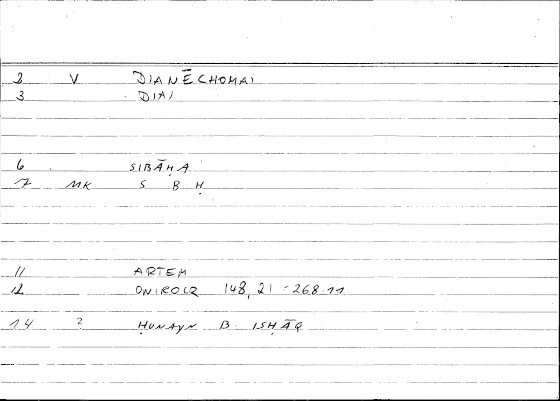 2 V DIANĒCHOMAI
3 DIAI
6 SIBĀḤA
7 MK S B Ḥ
11 ARTEM
12 ONIROCR 148,21 - 268.11
14 ? ḤUNAYN B ISḤĀQ